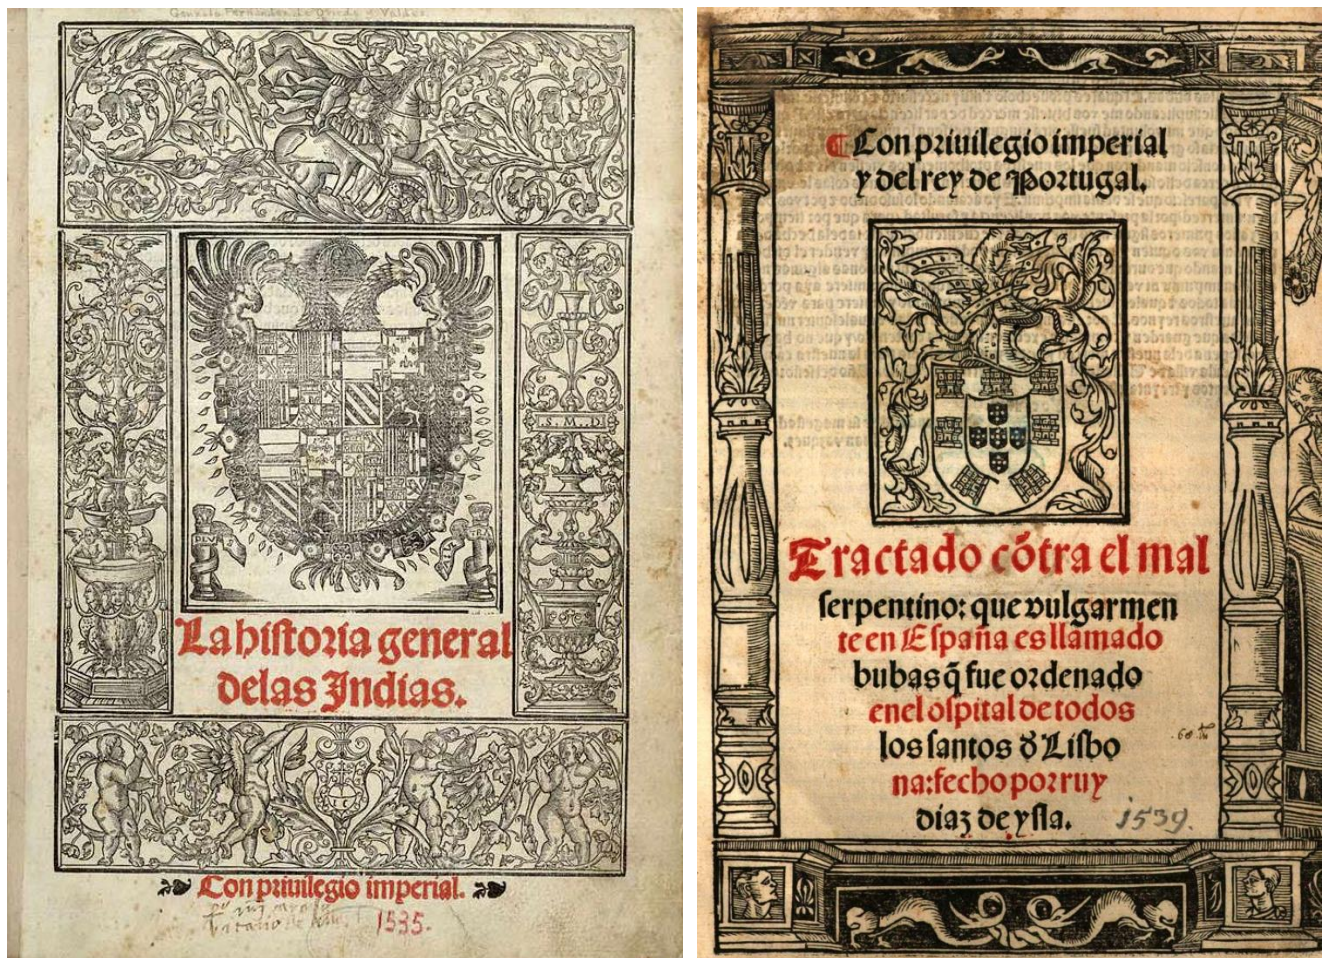 Gonzalo Fernandez de Oviedo y Valdés
.S.M..D.
PLVS
VLTRA
La historia general
delas Indias.
Con priuilegio imperial.
1535.
¶ Con priuilegio imperial
y del rey de Portugal.
Tractado cõtra el mal
serpentino: que vulgarmen
te en España es llamado
bubas q̃ fue ordenado
enel ospital de todos
los santos ð Lisbo
na: fecho por ruy
diaz de ysla.
1539.